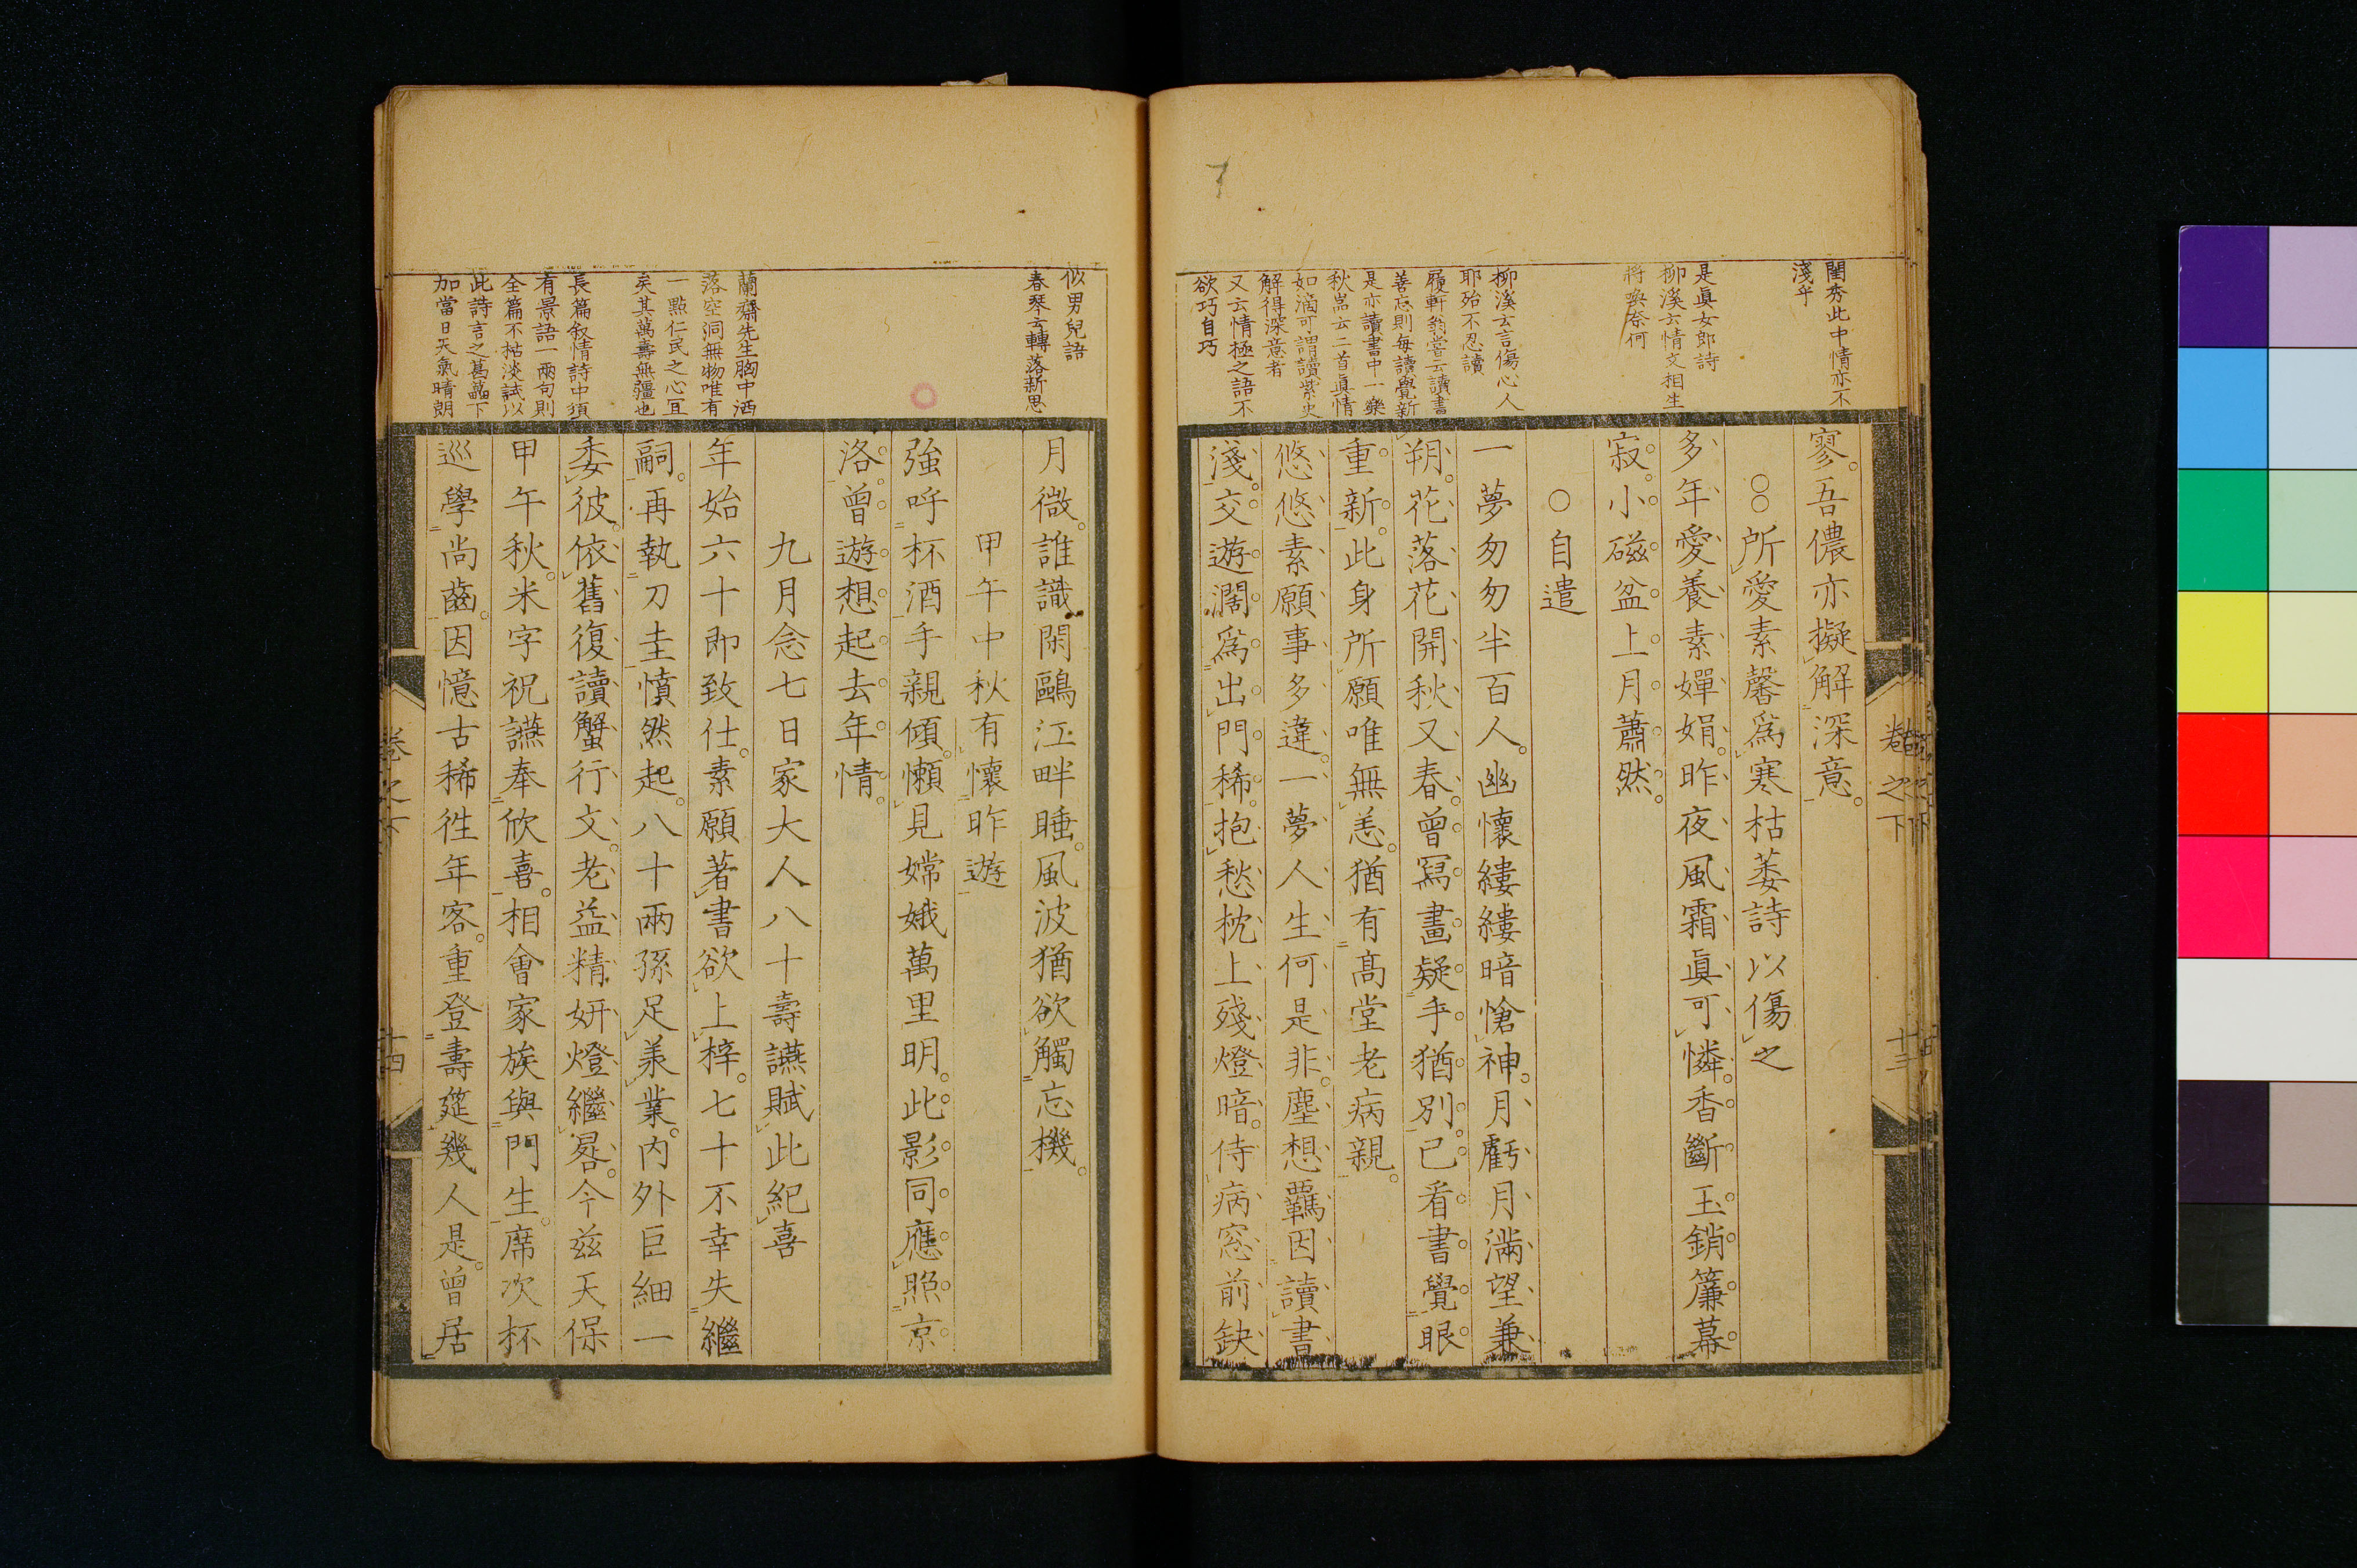 閨秀此中情亦不
淺乎
是眞女郎詩
柳溪云情文相生
將喚奈何
柳溪云言傷心人
耶殆不忍讀
履軒翁嘗云讀書
善忘則毎讀覺新
是亦讀書中一樂
秋嵓云二首眞情
如滴可謂讀紫史
解得深意者
又云情極之語不
欲巧自巧
寥吾儂亦擬解深意
○○所愛素馨爲寒枯萎詩以傷之
多年愛養素嬋娟昨夜風霜眞可憐香斷玉銷簾幕
寂小磁盆上月蕭然
○自遣
一夢匆匆半百人幽懷縷縷暗愴神月虧月滿望兼
朔花落花開秋又春曾寫畫疑手猶別已看書覺眼
重新此身所願唯無恙猶有髙堂老病親
悠悠素願事多違一夢人生何是非塵想羈因讀書
淺交遊濶爲出門稀抱愁枕上殘燈暗侍病窓前缺
卷之下
十三
似男兒語
春琴云轉落新思
蘭齋先生胸中洒
落空洞無物唯有
一點仁民之心宜
矣其萬壽無疆也
長篇敘情詩中須
有景語一兩句則
全篇不枯淡試以
此詩言之甚艷下
加當日天氣晴朗
月微誰識閑鷗江畔睡風波猶欲觸忘機
甲午中秋有懷昨遊
強呼杯酒手親傾懶見嫦娥萬里明此影同應照京
洛曾遊想起去年情
九月念七日家大人八十壽讌賦此紀喜
年始六十即致仕素願著書欲上梓七十不幸失繼
嗣再執刀圭憤然起八十兩孫足羕業内外巨細一
委彼依舊復讀蟹行文老益精妍燈繼晷今茲天保
甲午秋米字祝讌奉欣喜相會家族與門生席次杯
巡學尚齒因憶古稀徃年客重登壽筵幾人是曾居
卷之下
十四